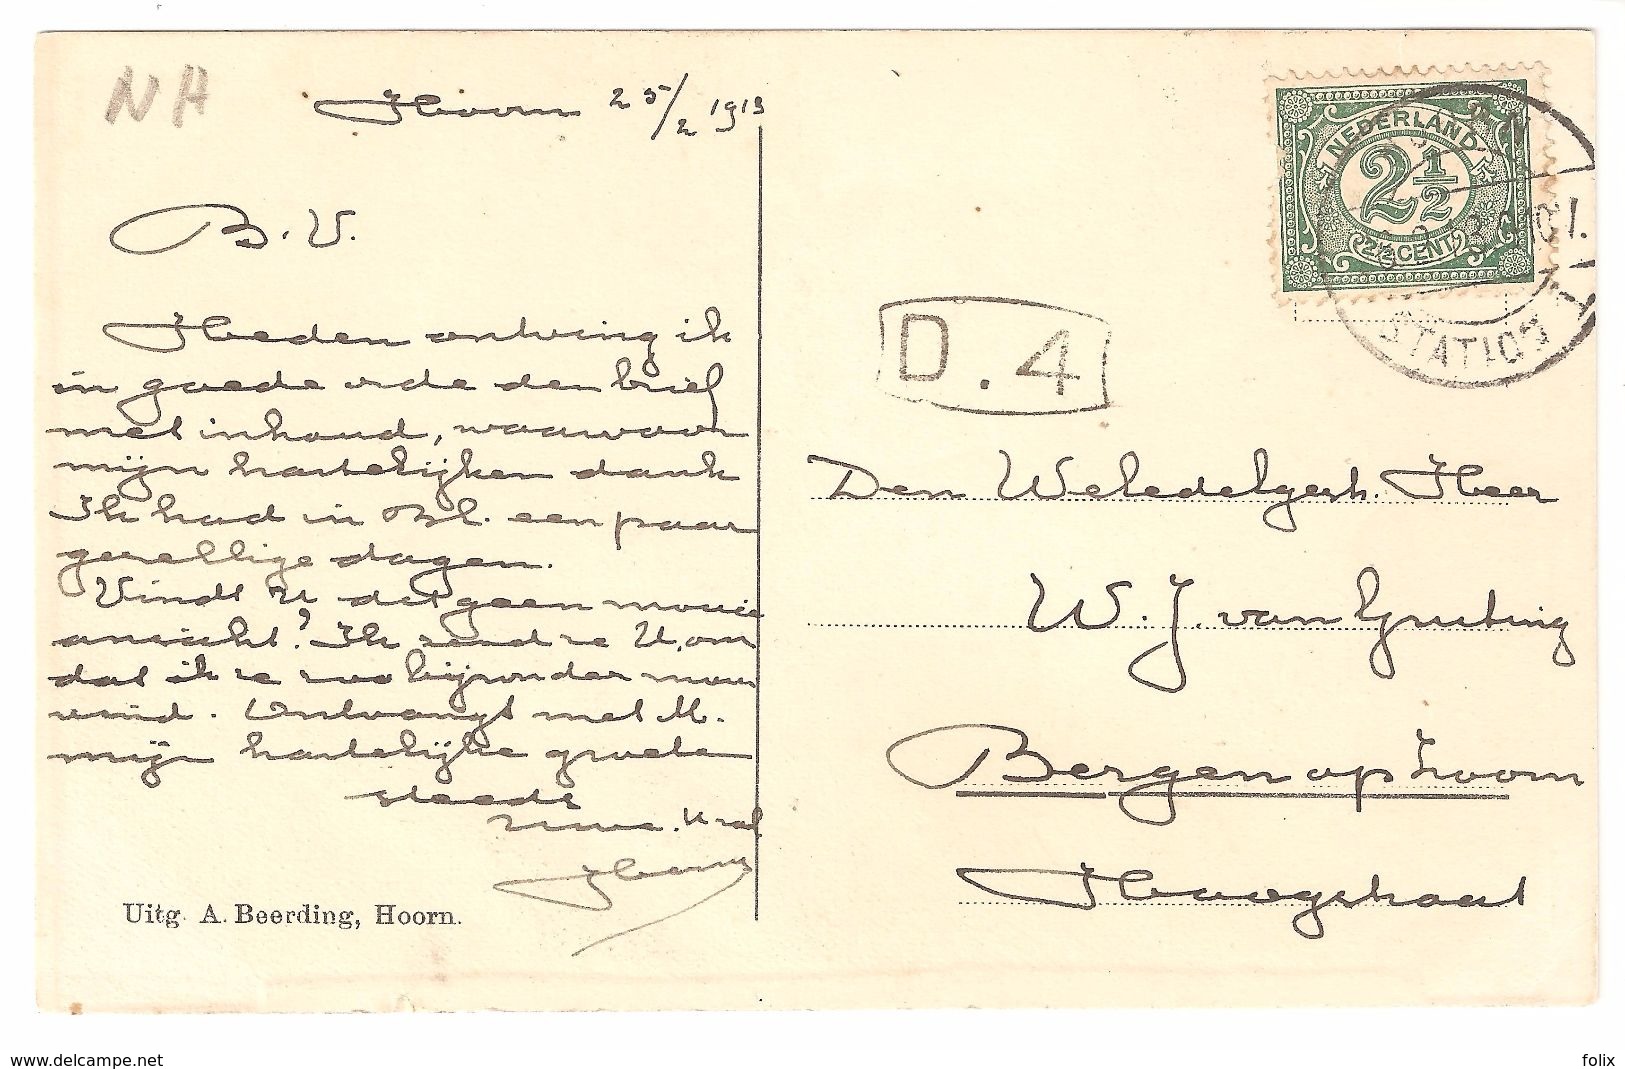 NH
Hoorn 25/2 1913
B. V.
Heden ontving ik
in goede orde den brief
met inhoud, waarvoor
mijn hartelijken dank
Ik had in Bl. een paar
gezellige dagen.
Vindt U dit geen mooie
ansicht? Ik zend ze U, om
dat ik ze zoo bijzonder mooi
vind. Ontvangt met M.
mijn hartelijke groeten
steeds
Uitg. A. Beerding, Hoorn.
NEDERLAND
2 1/2
2 1/2 CENT
STATION
D. 4
Den Weledelgesh. Heer
W. J. van Gruting
Bergen op Zoom
Hoogstraat
www.delcampe.net
folix